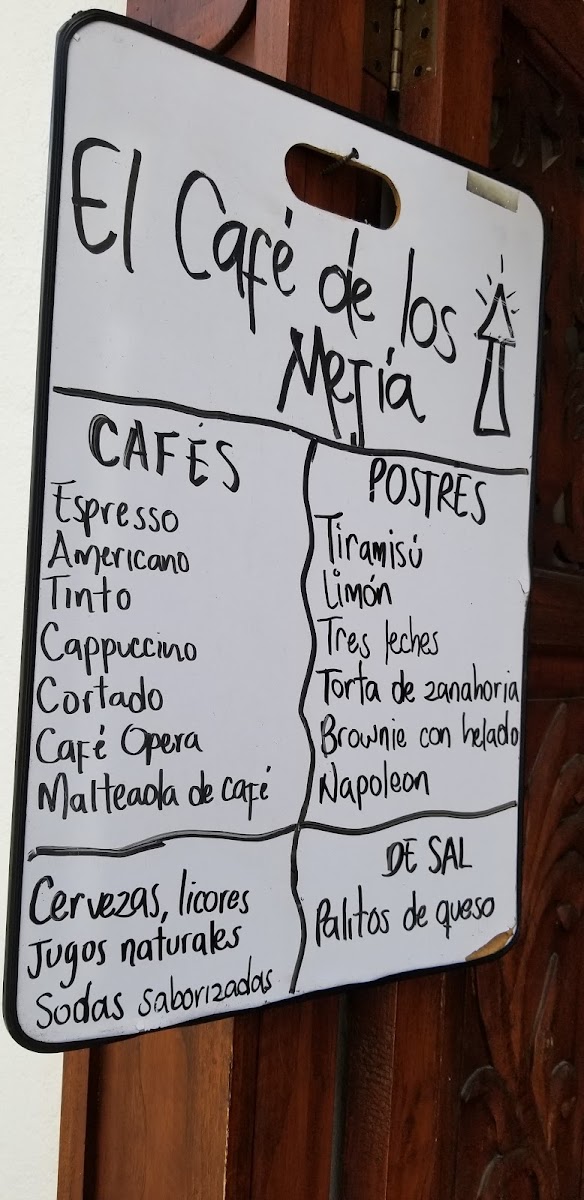 El Café de los
Mejía
CAFÉS
Espresso
Americano
Tinto
Cappuccino
Cortado
Café Opera
Malteada de café
POSTRES
Tiramisú
Limón
Tres leches
Torta de zanahoria
Brownie con helado
Napoleon
Cervezas, licores
Jugos naturales
Sodas saborizadas
DE SAL
Palitos de queso